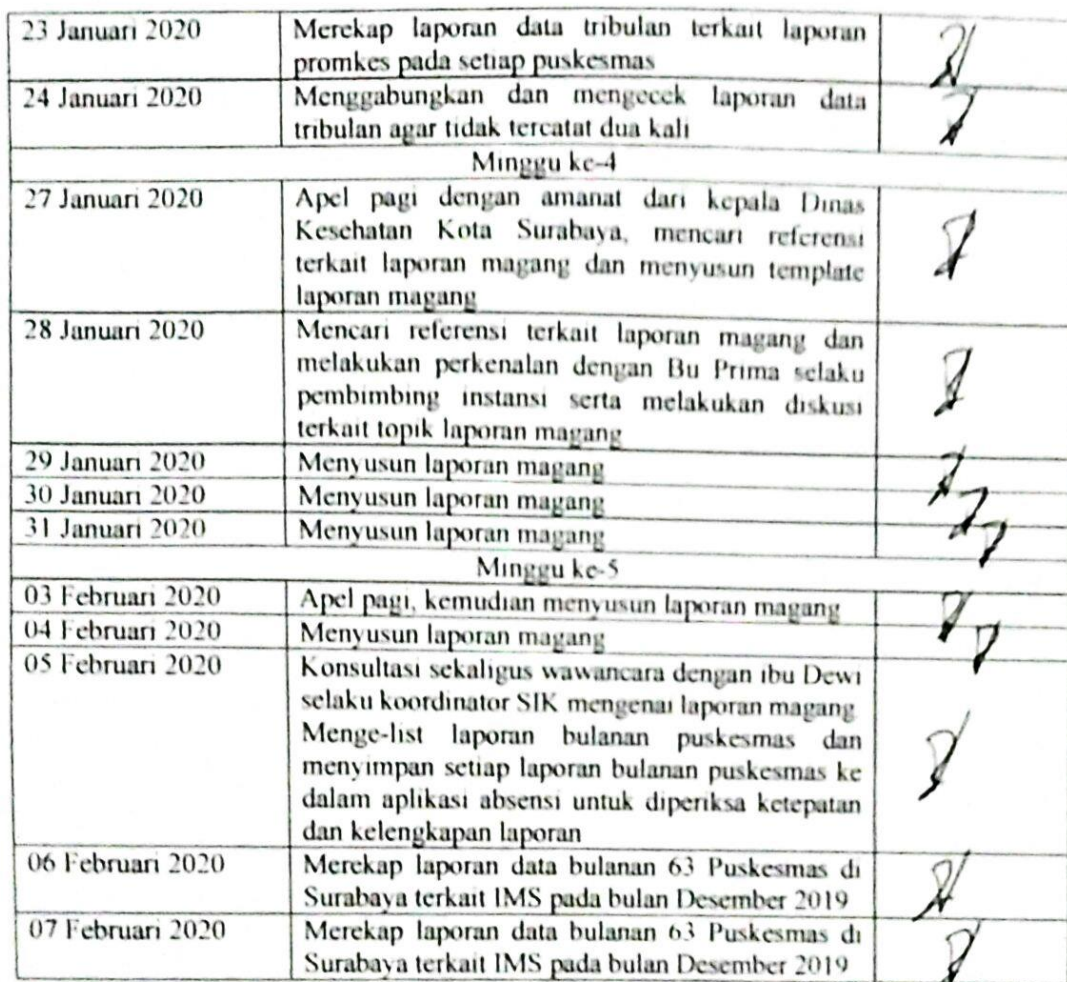 23 Januari 2020
Merekap laporan data tribulan terkait laporan
promkes pada setiap puskesmas
24 Januari 2020
Menggabungkan dan mengecek laporan data
tribulan agar tidak tercatat dua kali
Minggu ke-4
27 Januari 2020
Apel pagi dengan amanat dari kepala Dinas
Kesehatan Kota Surabaya, mencari referensi
terkait laporan magang dan menyusun template
laporan magang
28 Januari 2020
Mencari referensi terkait laporan magang dan
melakukan perkenalan dengan Bu Prima selaku
pembimbing instansi serta melakukan diskusi
terkait topik laporan magang
29 Januari 2020
Menyusun laporan magang
30 Januari 2020
Menyusun laporan magang
31 Januari 2020
Menyusun laporan magang
Minggu ke-5
03 Februari 2020
Apel pagi, kemudian menyusun laporan magang
04 Februari 2020
Menyusun laporan magang
05 Februari 2020
Konsultasi sekaligus wawancara dengan ibu Dewi
selaku koordinator SIK mengenai laporan magang
Menge-list laporan bulanan puskesmas dan
menyimpan setiap laporan bulanan puskesmas ke
dalam aplikasi absensi untuk diperiksa ketepatan
dan kelengkapan laporan
06 Februari 2020
Merekap laporan data bulanan 63 Puskesmas di
Surabaya terkait IMS pada bulan Desember 2019
07 Februari 2020
Merekap laporan data bulanan 63 Puskesmas di
Surabaya terkait IMS pada bulan Desember 2019